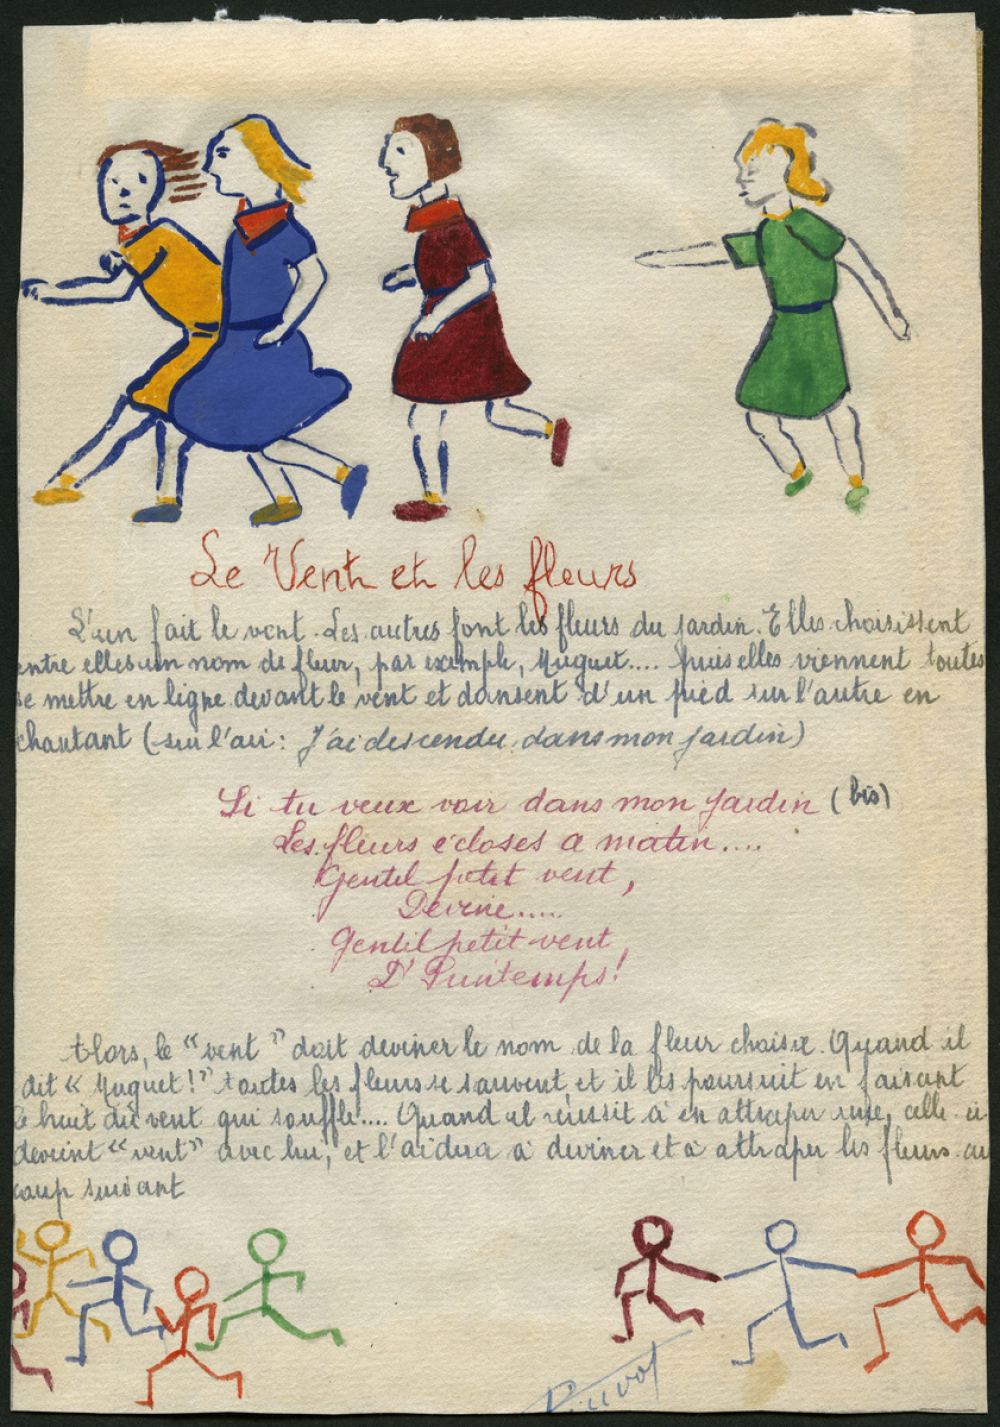 Le Vent et les fleurs
L'un fait le vent. Les autres font les fleurs du jardin. Elles choisissent
entre elles un nom de fleur, par exemple, Muguet.... puis elles viennent toutes
se mettre en ligne devant le vent et dansent d'un pied sur l'autre en
chantant (sur l'air : J'ai descendu dans mon jardin)
Si tu veux voir dans mon jardin (bis)
Les fleurs écloses a matin....
Gentil petit vent,
Devine.....
Gentil petit vent,
D'Printemps!
Alors, le "vent" doit deviner le nom de la fleur choisie. Quand il
dit "Muguet!" toutes les fleurs se sauvent, et il les poursuit en faisant
le bruit du vent qui souffle.... Quand il réussit à en attraper une, celle-ci
devient "vent" avec lui, et l'aidera à deviner et à attraper les fleurs au
coup suivant